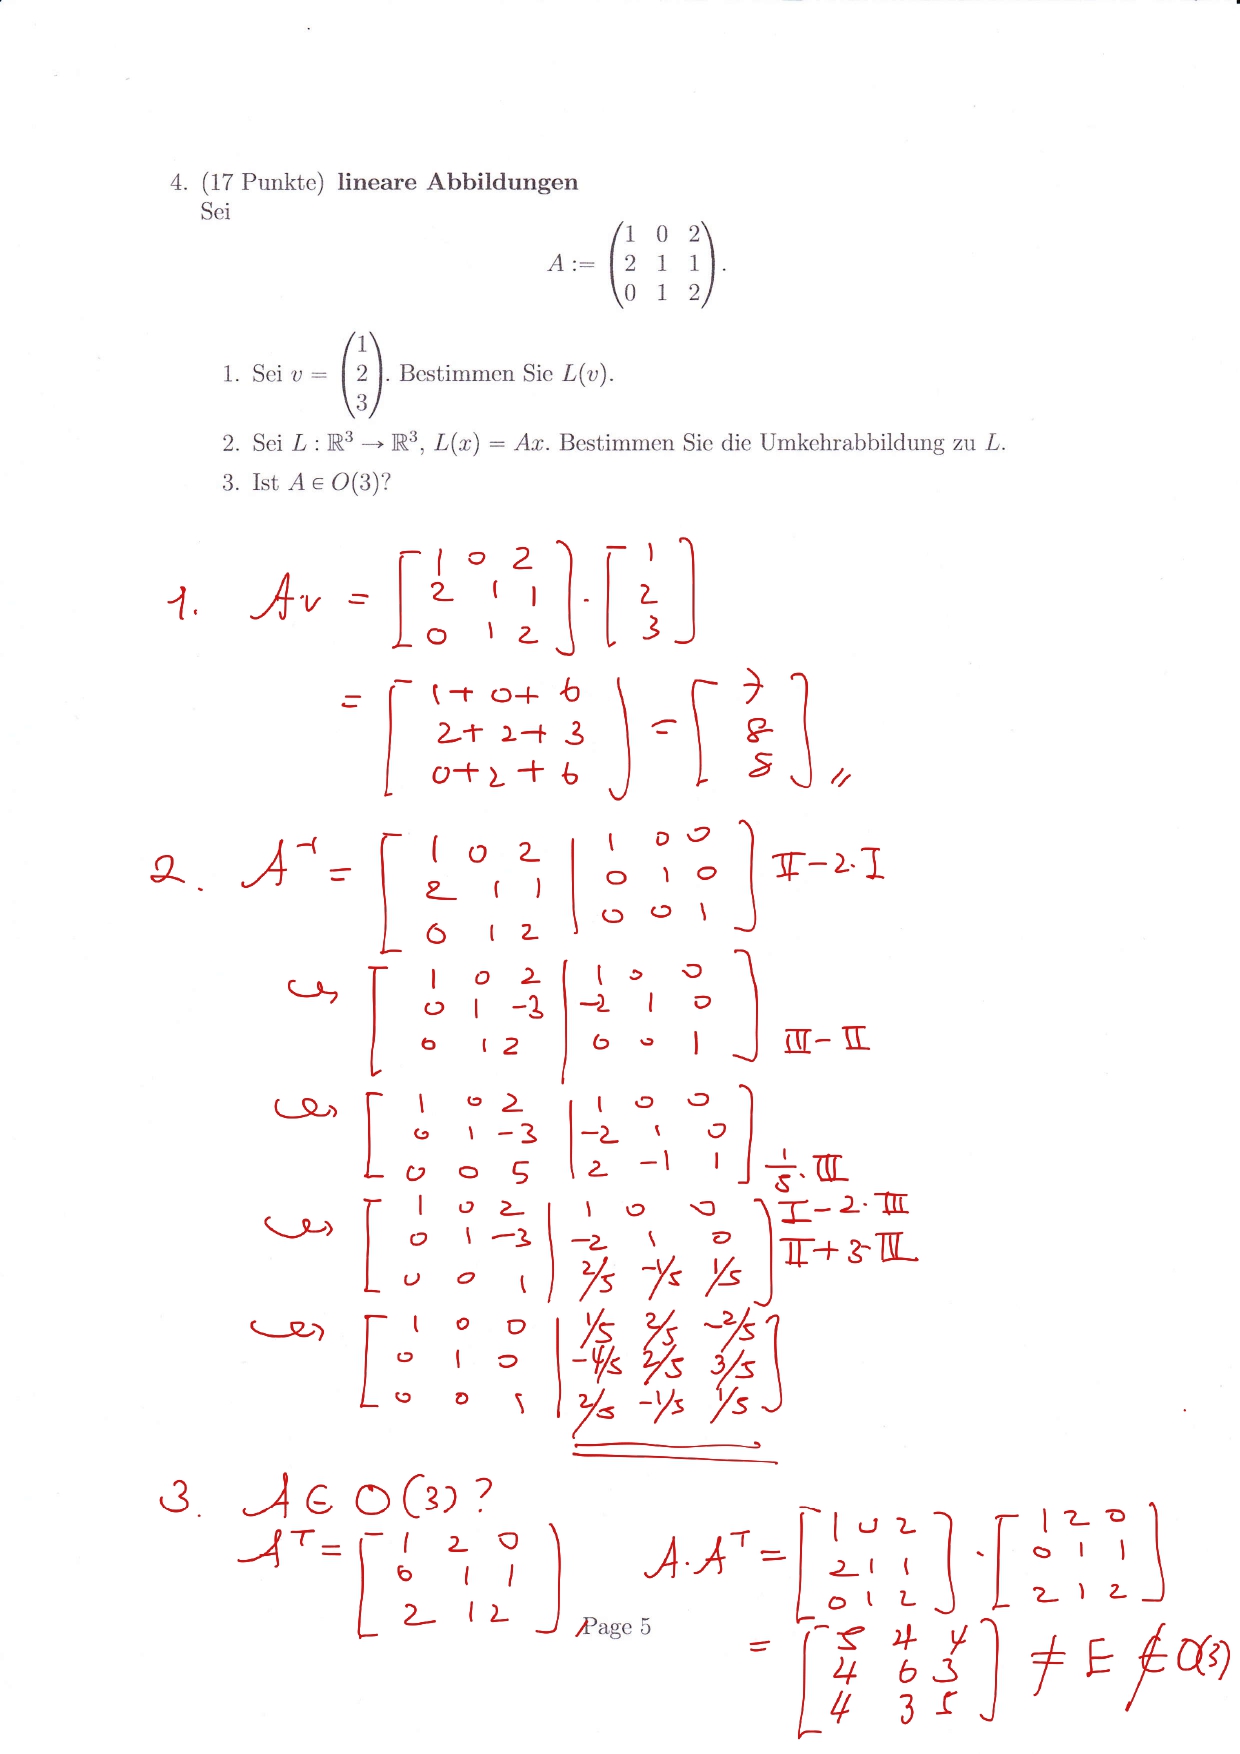 4. (17 Punkte) lineare Abbildungen
Sei
A := (1 0 2
2 1 1
0 1 2).
1. Sei v = (1
2
3). Bestimmen Sie L(v).
2. Sei L : ℝ³ → ℝ³, L(x) = Ax. Bestimmen Sie die Umkehrabbildung zu L.
3. Ist A ∈ O(3)?
1. A·v = [1 0 2
2 1 1
0 1 2] · [1
2
3]
= [1+0+6
2+2+3
0+2+6] = [7
8
8]
2. A⁻¹ = [1 0 2 | 1 0 0
2 1 1 | 0 1 0
0 1 2 | 0 0 1] II-2·I
[1 0 2 | 1 0 0
0 1 -3 | -2 1 0
0 1 2 | 0 0 1] III-II
[1 0 2 | 1 0 0
0 1 -3 | -2 1 0
0 0 5 | 2 -1 1] 1/5·III
[1 0 2 | 1 0 0 I-2·III
0 1 -3 | -2 1 0 II+3·III
0 0 1 | 2/5 -1/5 1/5]
[1 0 0 | 1/5 2/5 -2/5
0 1 0 | -4/5 2/5 3/5
0 0 1 | 2/5 -1/5 1/5]
3. A ∈ O(3)?
Aᵀ = [1 2 0
0 1 1
2 1 2]
A·Aᵀ = [1 0 2
2 1 1
0 1 2] · [1 2 0
0 1 1
2 1 2]
= [5 4 4
4 6 3
4 3 5] ≠ E ∉ O(3)
Page 5